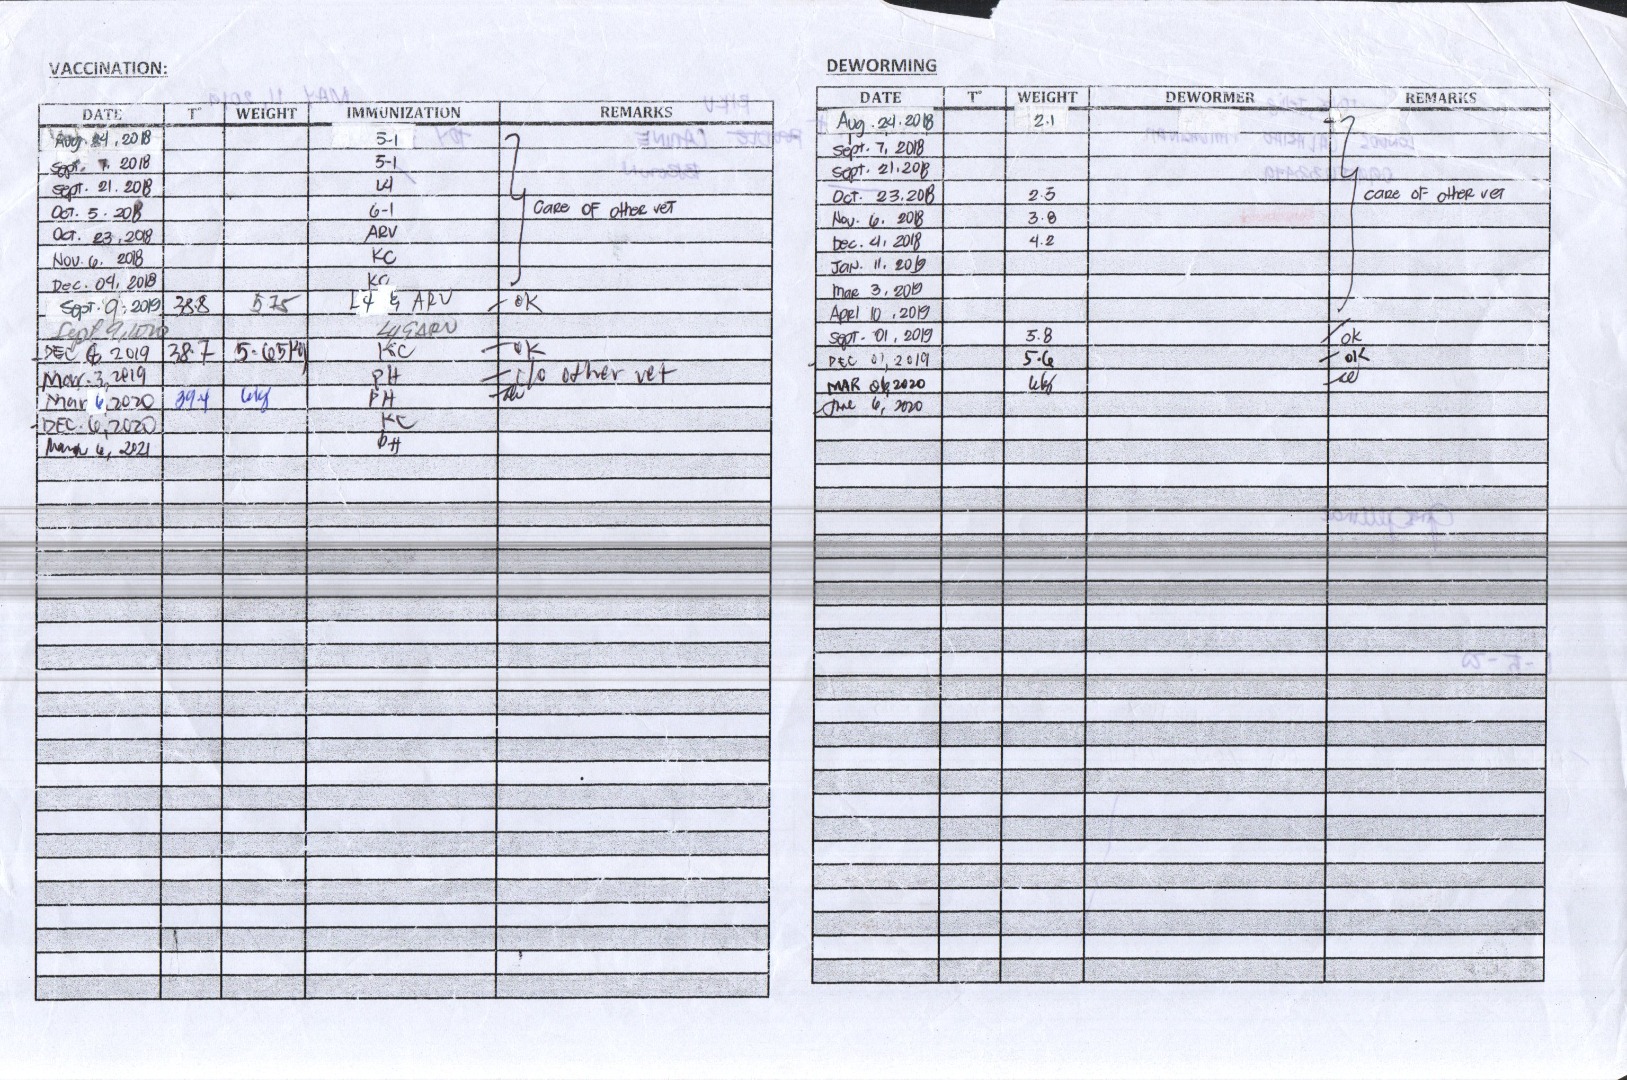 VACCINATION:
DATE T° WEIGHT IMMUNIZATION REMARKS
Aug. 24, 2018 5-1
Sept. 7 2018 5-1
Sept. 21. 2018 L4
Oct. 5. 2018 6-1 Care OF other vet
Oct. 23, 2018 ARV
Nov. 6. 2018 KC
Dec. 04, 2018 KC
Sept. 9, 2019 38.8 5.75 L4 & ARV - OK
Sept 9, 2020 L4 & ARV
DEC 6, 2019 38.7 5.65kg KC - OK
Mar. 3, 2019 PH - c/o other vet
Mar 6, 2020 39.4 PH
DEC. 6, 2020 KC
March 6, 2021 PH
DEWORMING
DATE T° WEIGHT DEWORMER REMARKS
Aug. 24. 2018 2.1
Sept. 7, 2018
Sept. 21. 2018
Oct. 23. 2018 2.5 care OF other vet
Nov. 6. 2018 3.8
Dec. 4, 2018 4.2
Jan. 11. 2019
Mar 3, 2019
April 10, 2019
Sept. 01, 2019 5.8 OK
DEC 01, 2019 5.6 - OK
MAR 06, 2020
June 6, 2020